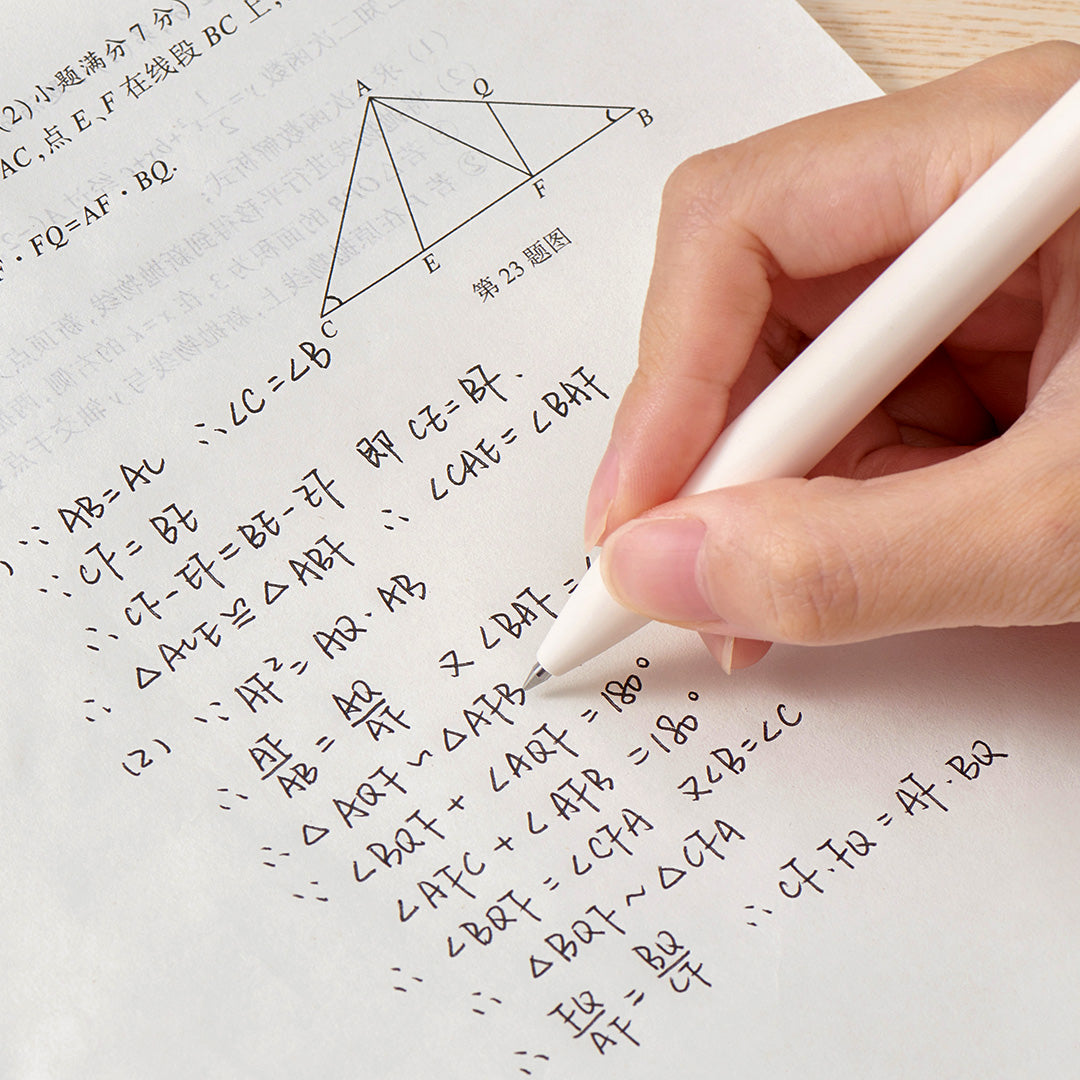 (2)小题满分7分)
AC,点 E、F 在线段 BC 上,
· FQ=AF · BQ.
A
Q
B
F
E
C
第 23 题图
∵ AB=AC ∴ ∠C=∠B
∵ CF = BE
∴ CF-EF=BE-EF 即 CE=BF.
∴ △ACE≌△ABF ∴ ∠CAE=∠BAF
(2) ∵ AF²=AQ·AB
∴ AF/AB = AQ/AF 又∠BAF =
∴ △AQF ∽ △AFB
∵ ∠BQF + ∠AQF = 180°
∠AFC + ∠AFB = 180°
∴ ∠BQF = ∠CFA 又∠B=∠C
∴ △BQF ~ △CFA
∴ FQ/AF = BQ/CF ∴ CF·FQ = AF·BQ